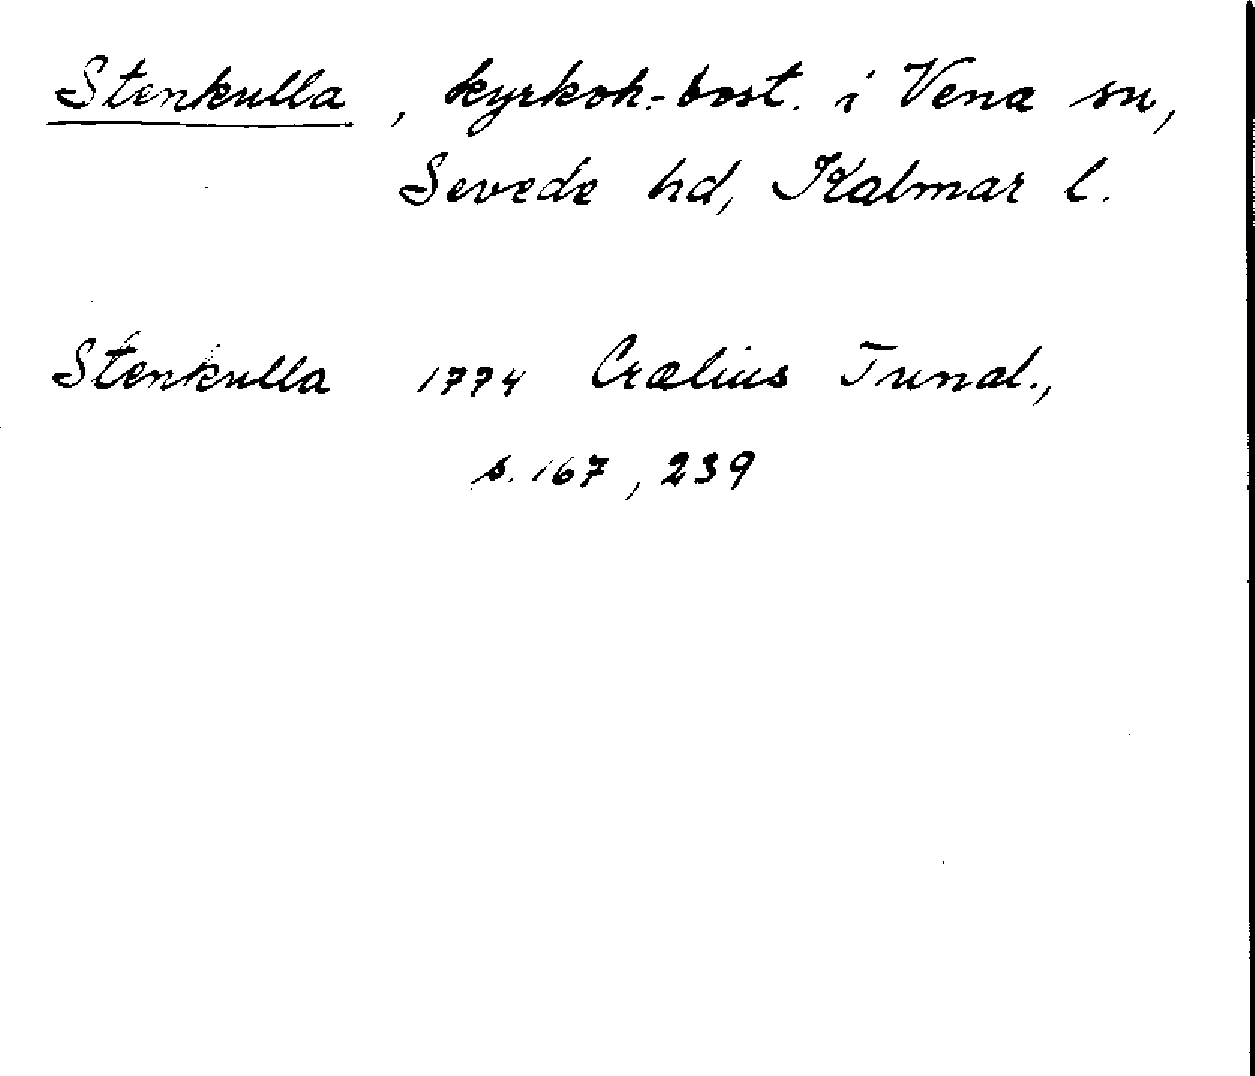 Stenkulla, kyrkoh.-bost. i Vena sn,
Sevede hd, Kalmar l.
Stenkulla 1774 Crælius Tunal.,
s. 167, 239